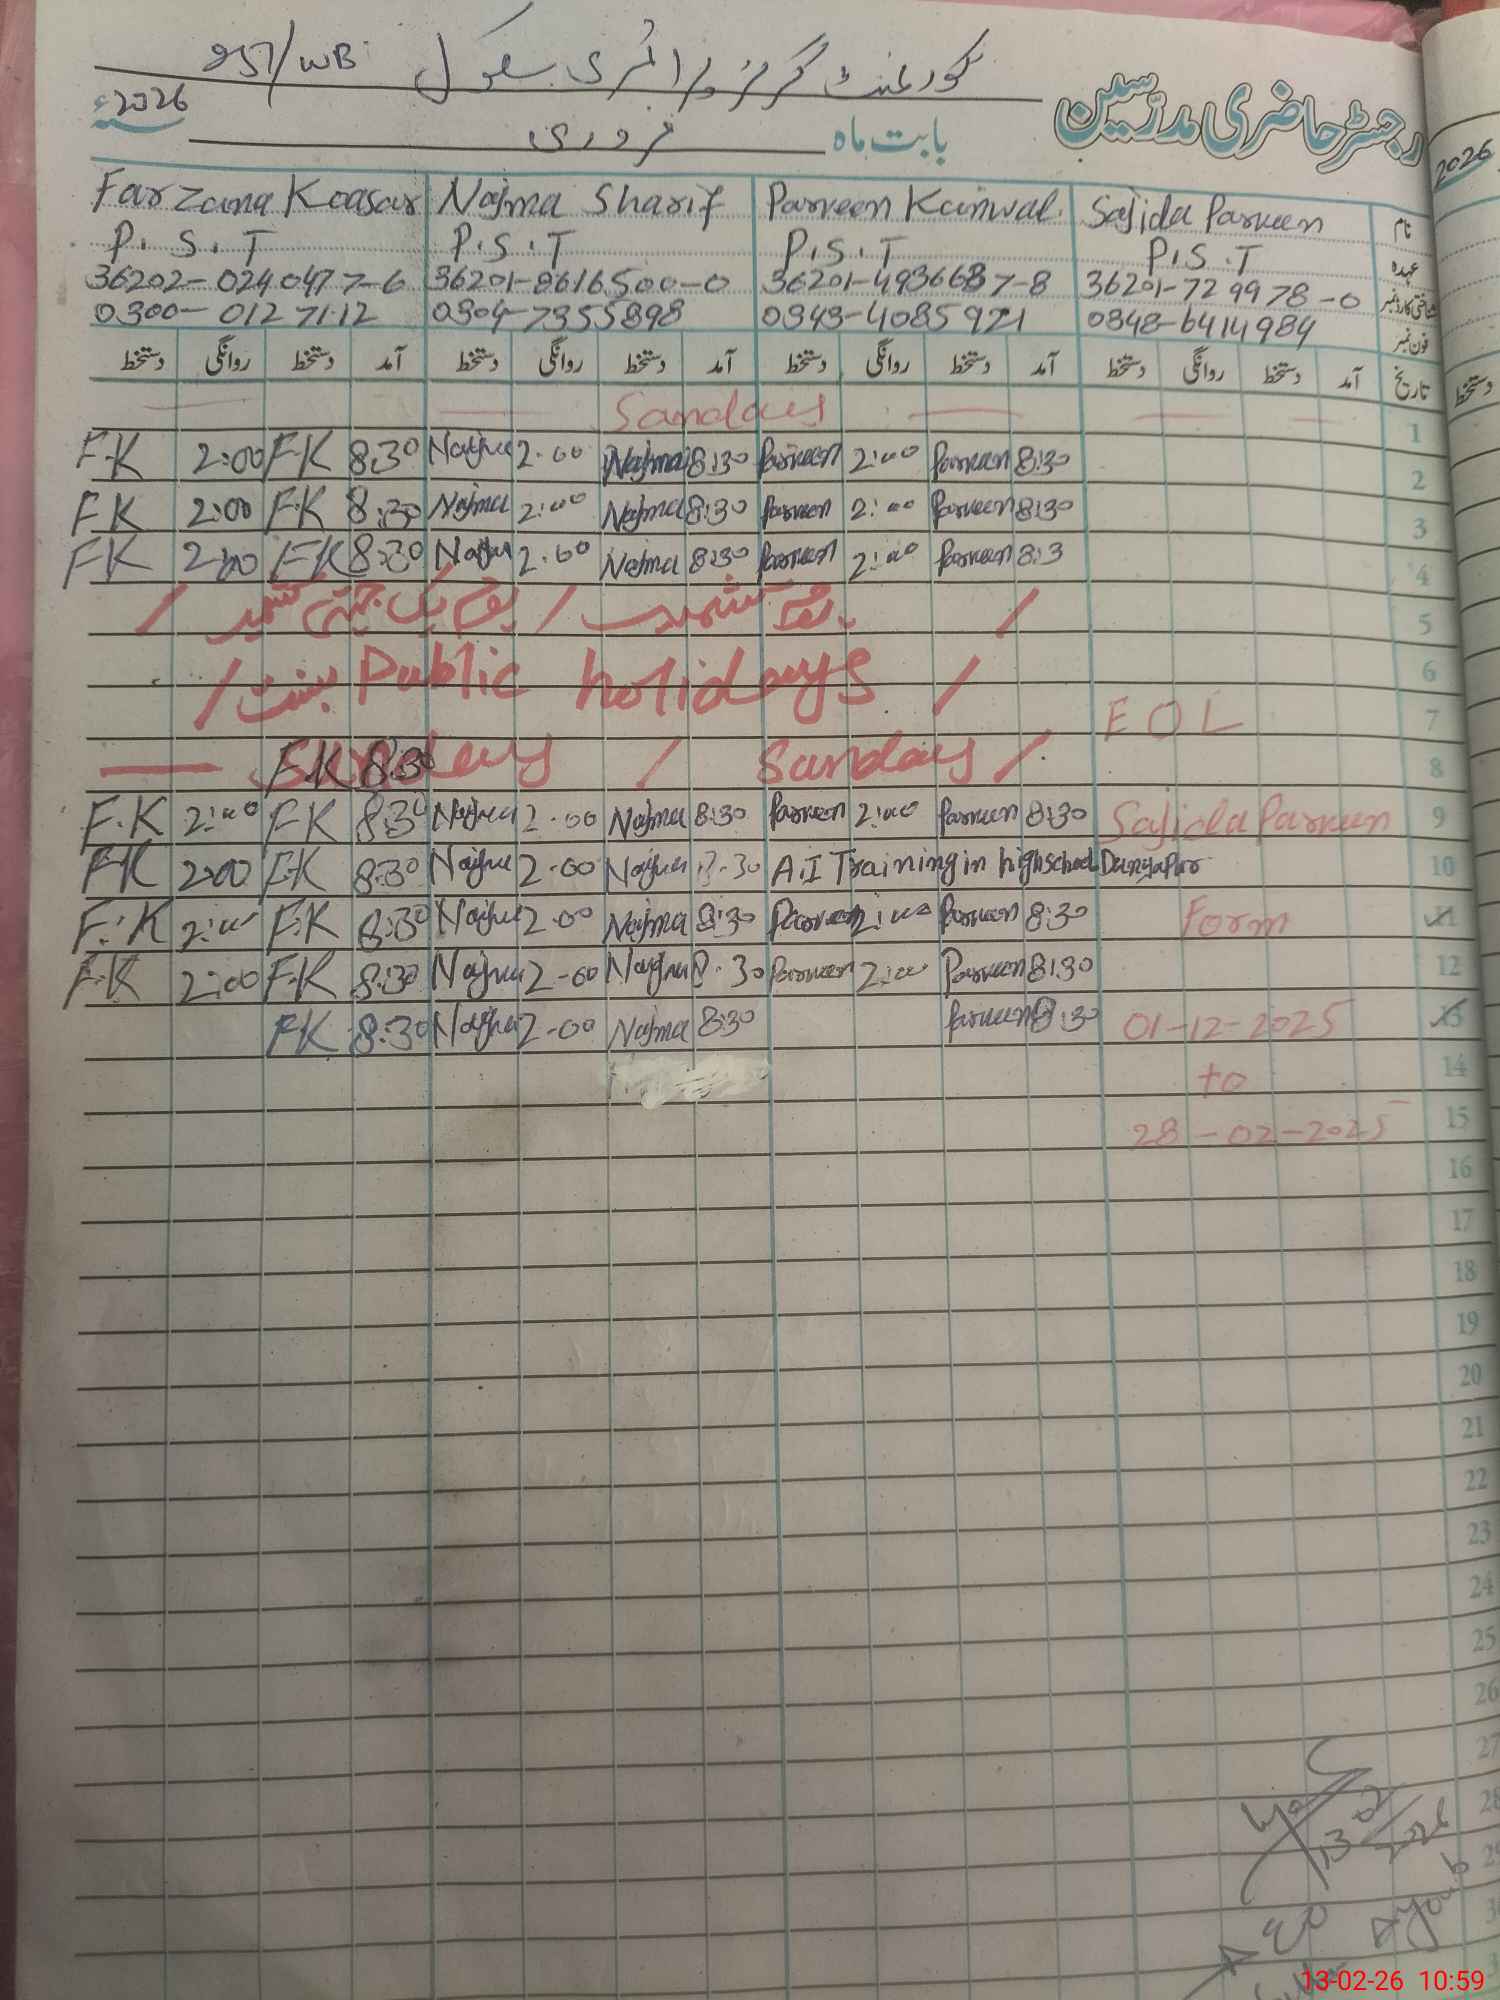 گورنمنٹ گرلز پرائمری سکول 251/WB
رجسٹر حاضری مدرسین
2026ء
بابت ماہ فروری
2026
Farzana Koasar Najma Sharif Parveen Kanwal. Sajida Parveen نام
P.S.T P.S.T P.S.T P.S.T عہدہ
36202-0240477-6 36201-8616500-0 36201-4936687-8 36201-7299978-0 شناختی کارڈ نمبر
0300-0127112 0304-7355898 0343-4085921 0348-6414984 فون نمبر
دستخط روانگی دستخط آمد دستخط روانگی دستخط آمد دستخط روانگی دستخط آمد دستخط روانگی دستخط آمد تاریخ دستخط
Sandays 1
F.K 2:00 F.K 8:30 Najma 2.00 Najma 8:30 Parveen 2:00 Parveen 8:30 2
F.K 2:00 F.K 8:30 Najma 2:00 Najma 8:30 Parveen 2:00 Parveen 8:30 3
F.K 2:00 F.K 8:30 Najma 2.00 Najma 8:30 Parveen 2:00 Parveen 8:3 4
/ یوم یک جہتی کشمیر / یوم کشمیر / 5
/ بسنت Public holidays / 6
EOL 7
Sundays F.K 8:30 / Sandays / 8
F.K 2:00 F.K 8:30 Najma 2.00 Najma 8:30 Parveen 2:00 Parveen 8:30 Sajida Parveen 9
F.K 2:00 F.K 8:30 Najma 2.00 Najma 8.30 A.I Training in high school Dunyapur 10
F.K 2:00 F.K 8:30 Najma 2.00 Najma 8:30 Parveen 2:00 Parveen 8:30 Form 11
F.K 2:00 F.K 8:30 Najma 2-00 Najma 8.30 Parveen 2:00 Parveen 8:30 12
F.K 8:30 Najma 2-00 Najma 8:30 Parveen 8:30 01-12-2025 13
to 14
28-02-2025 15
16
17
18
19
20
21
22
23
24
25
26
27
28
29
13-02-2026
AEO Ayoub
13-02-26 10:59